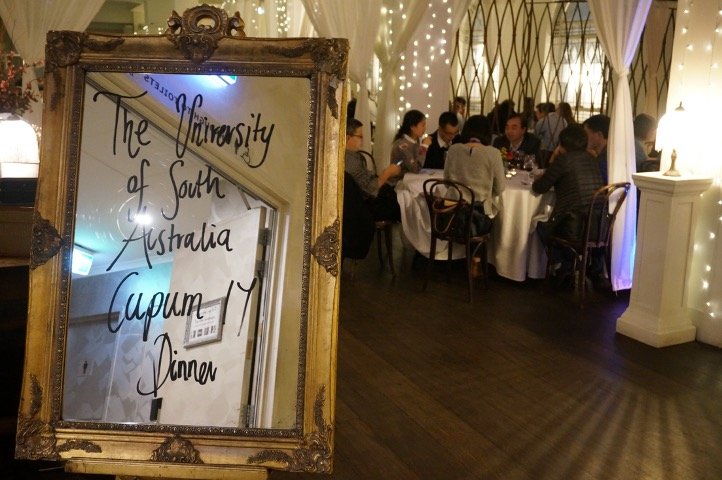 TOILETS
The University
of South
Australia
Cupum 17
Dinner